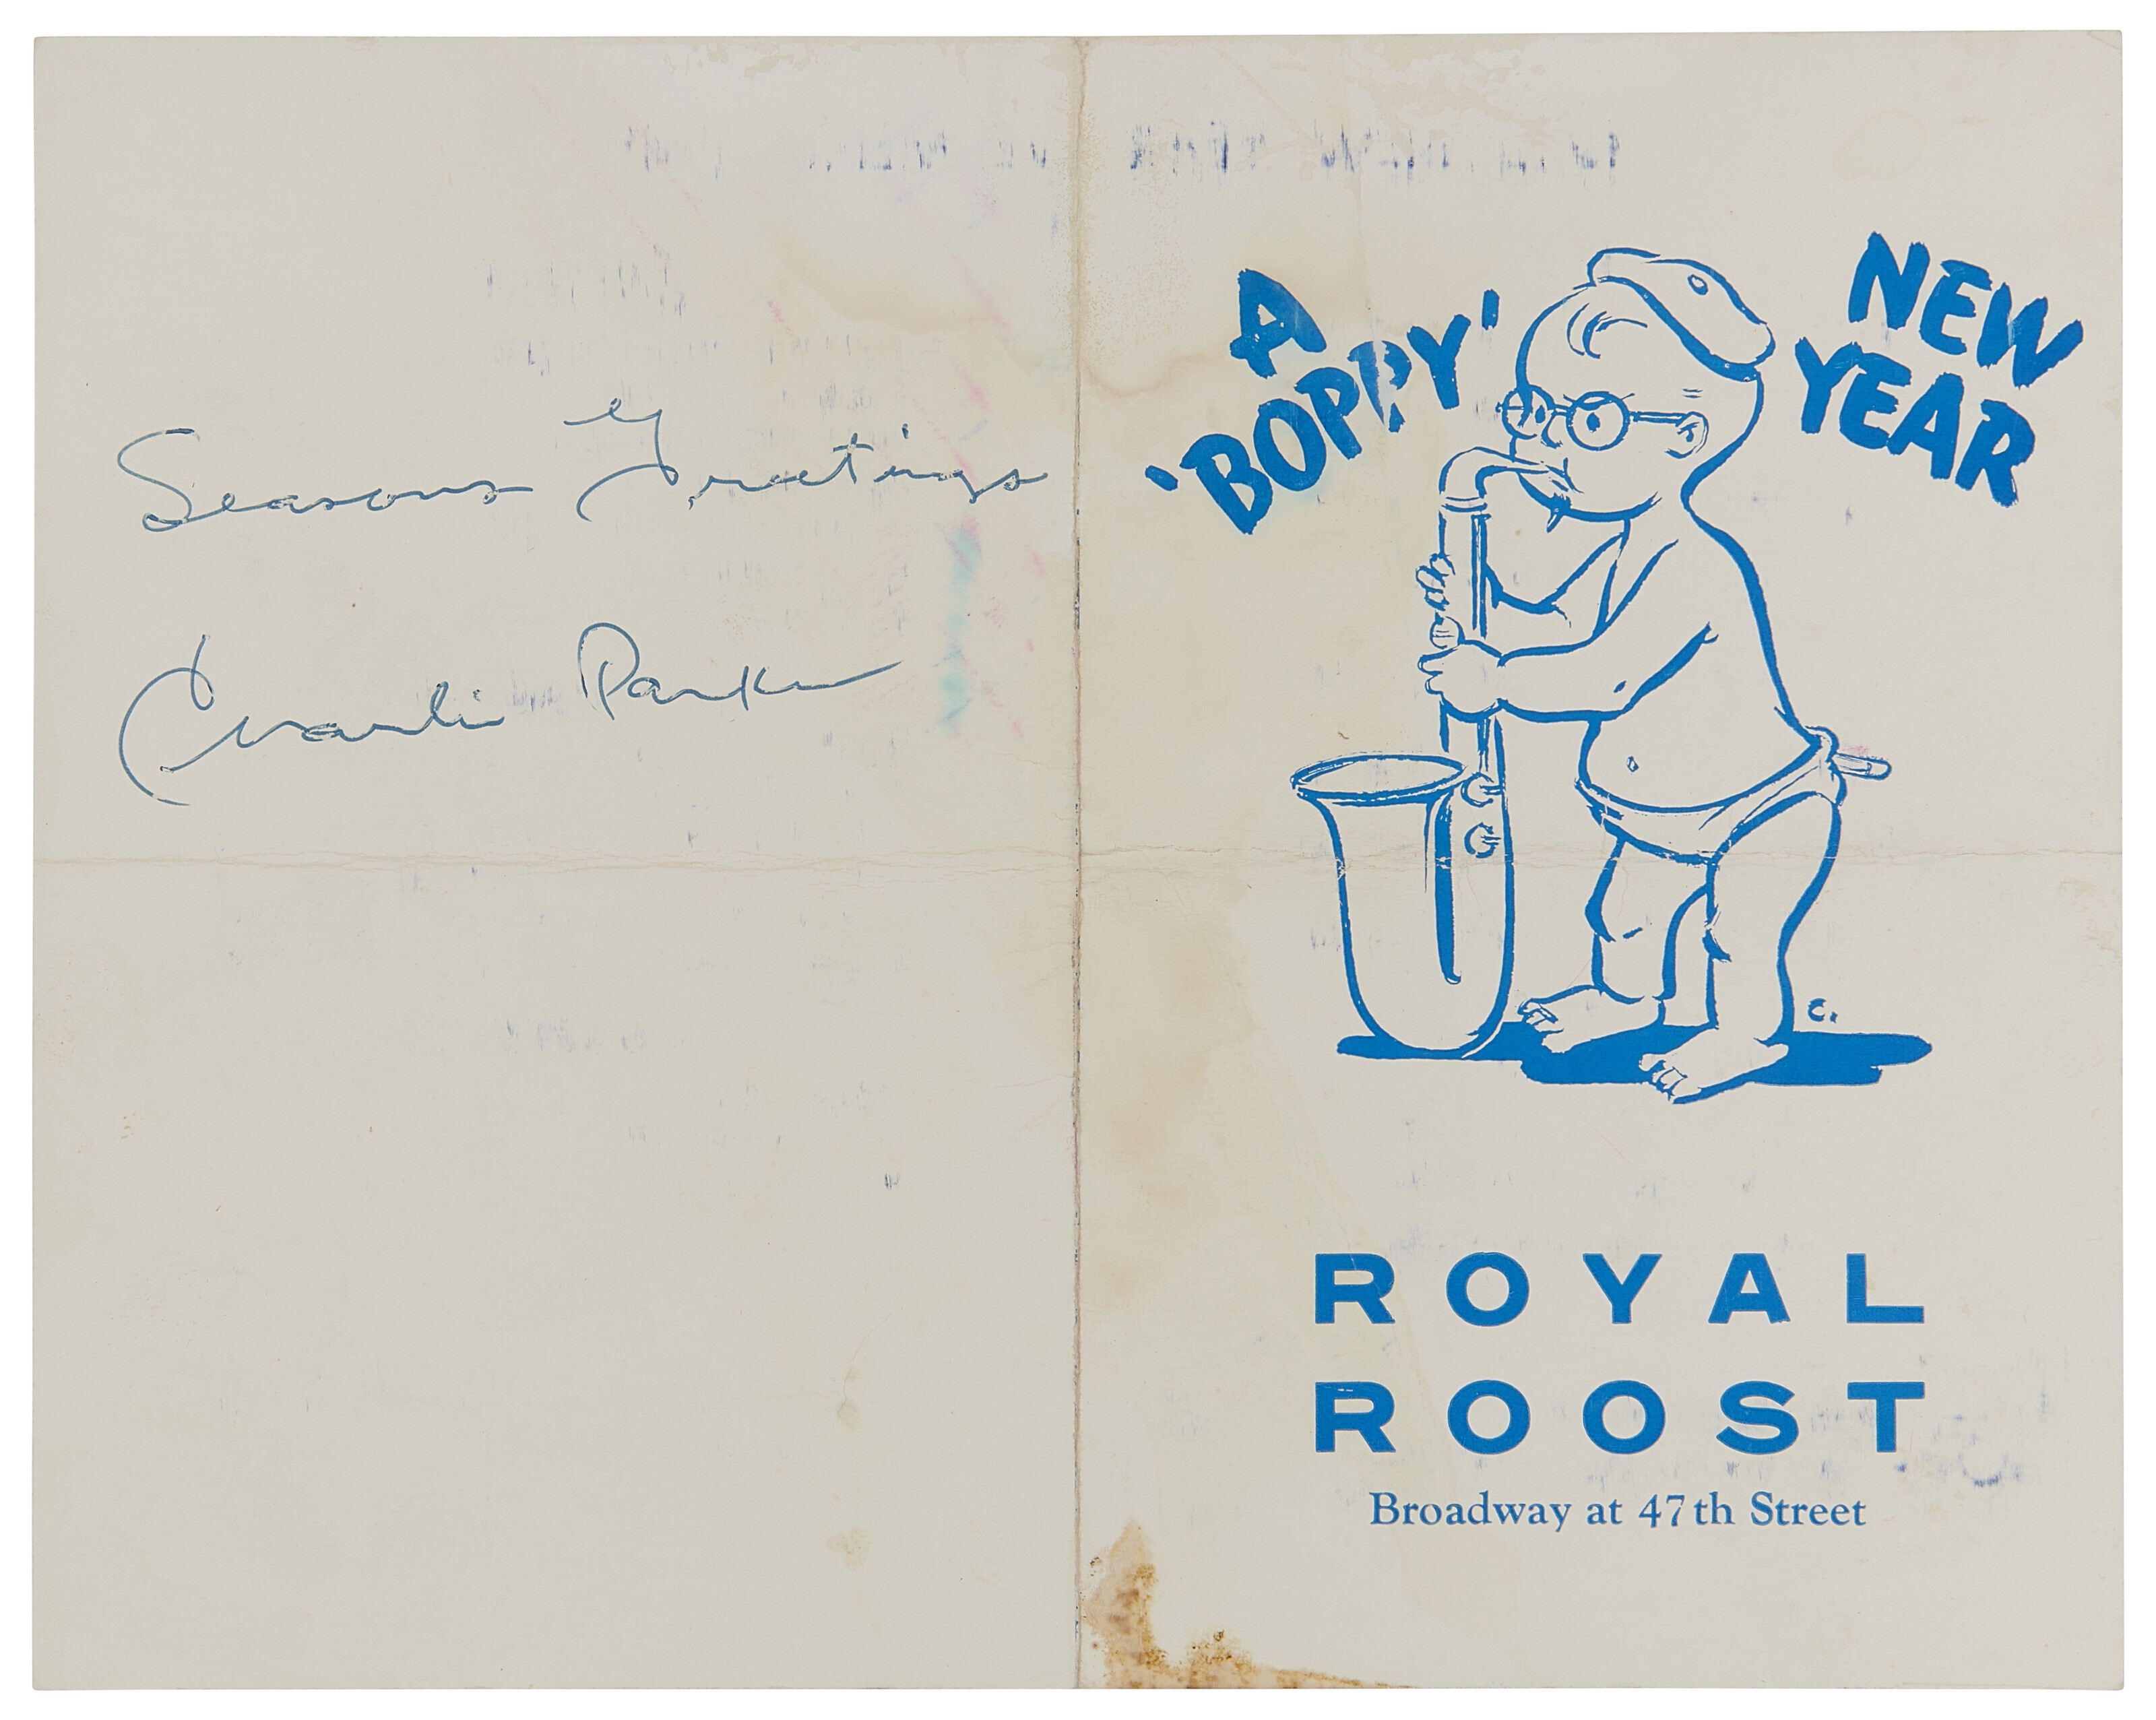 Seasons Greetings
Charlie Parker
A
'BOPPY'
NEW
YEAR
C.
ROYAL
ROOST
Broadway at 47th Street